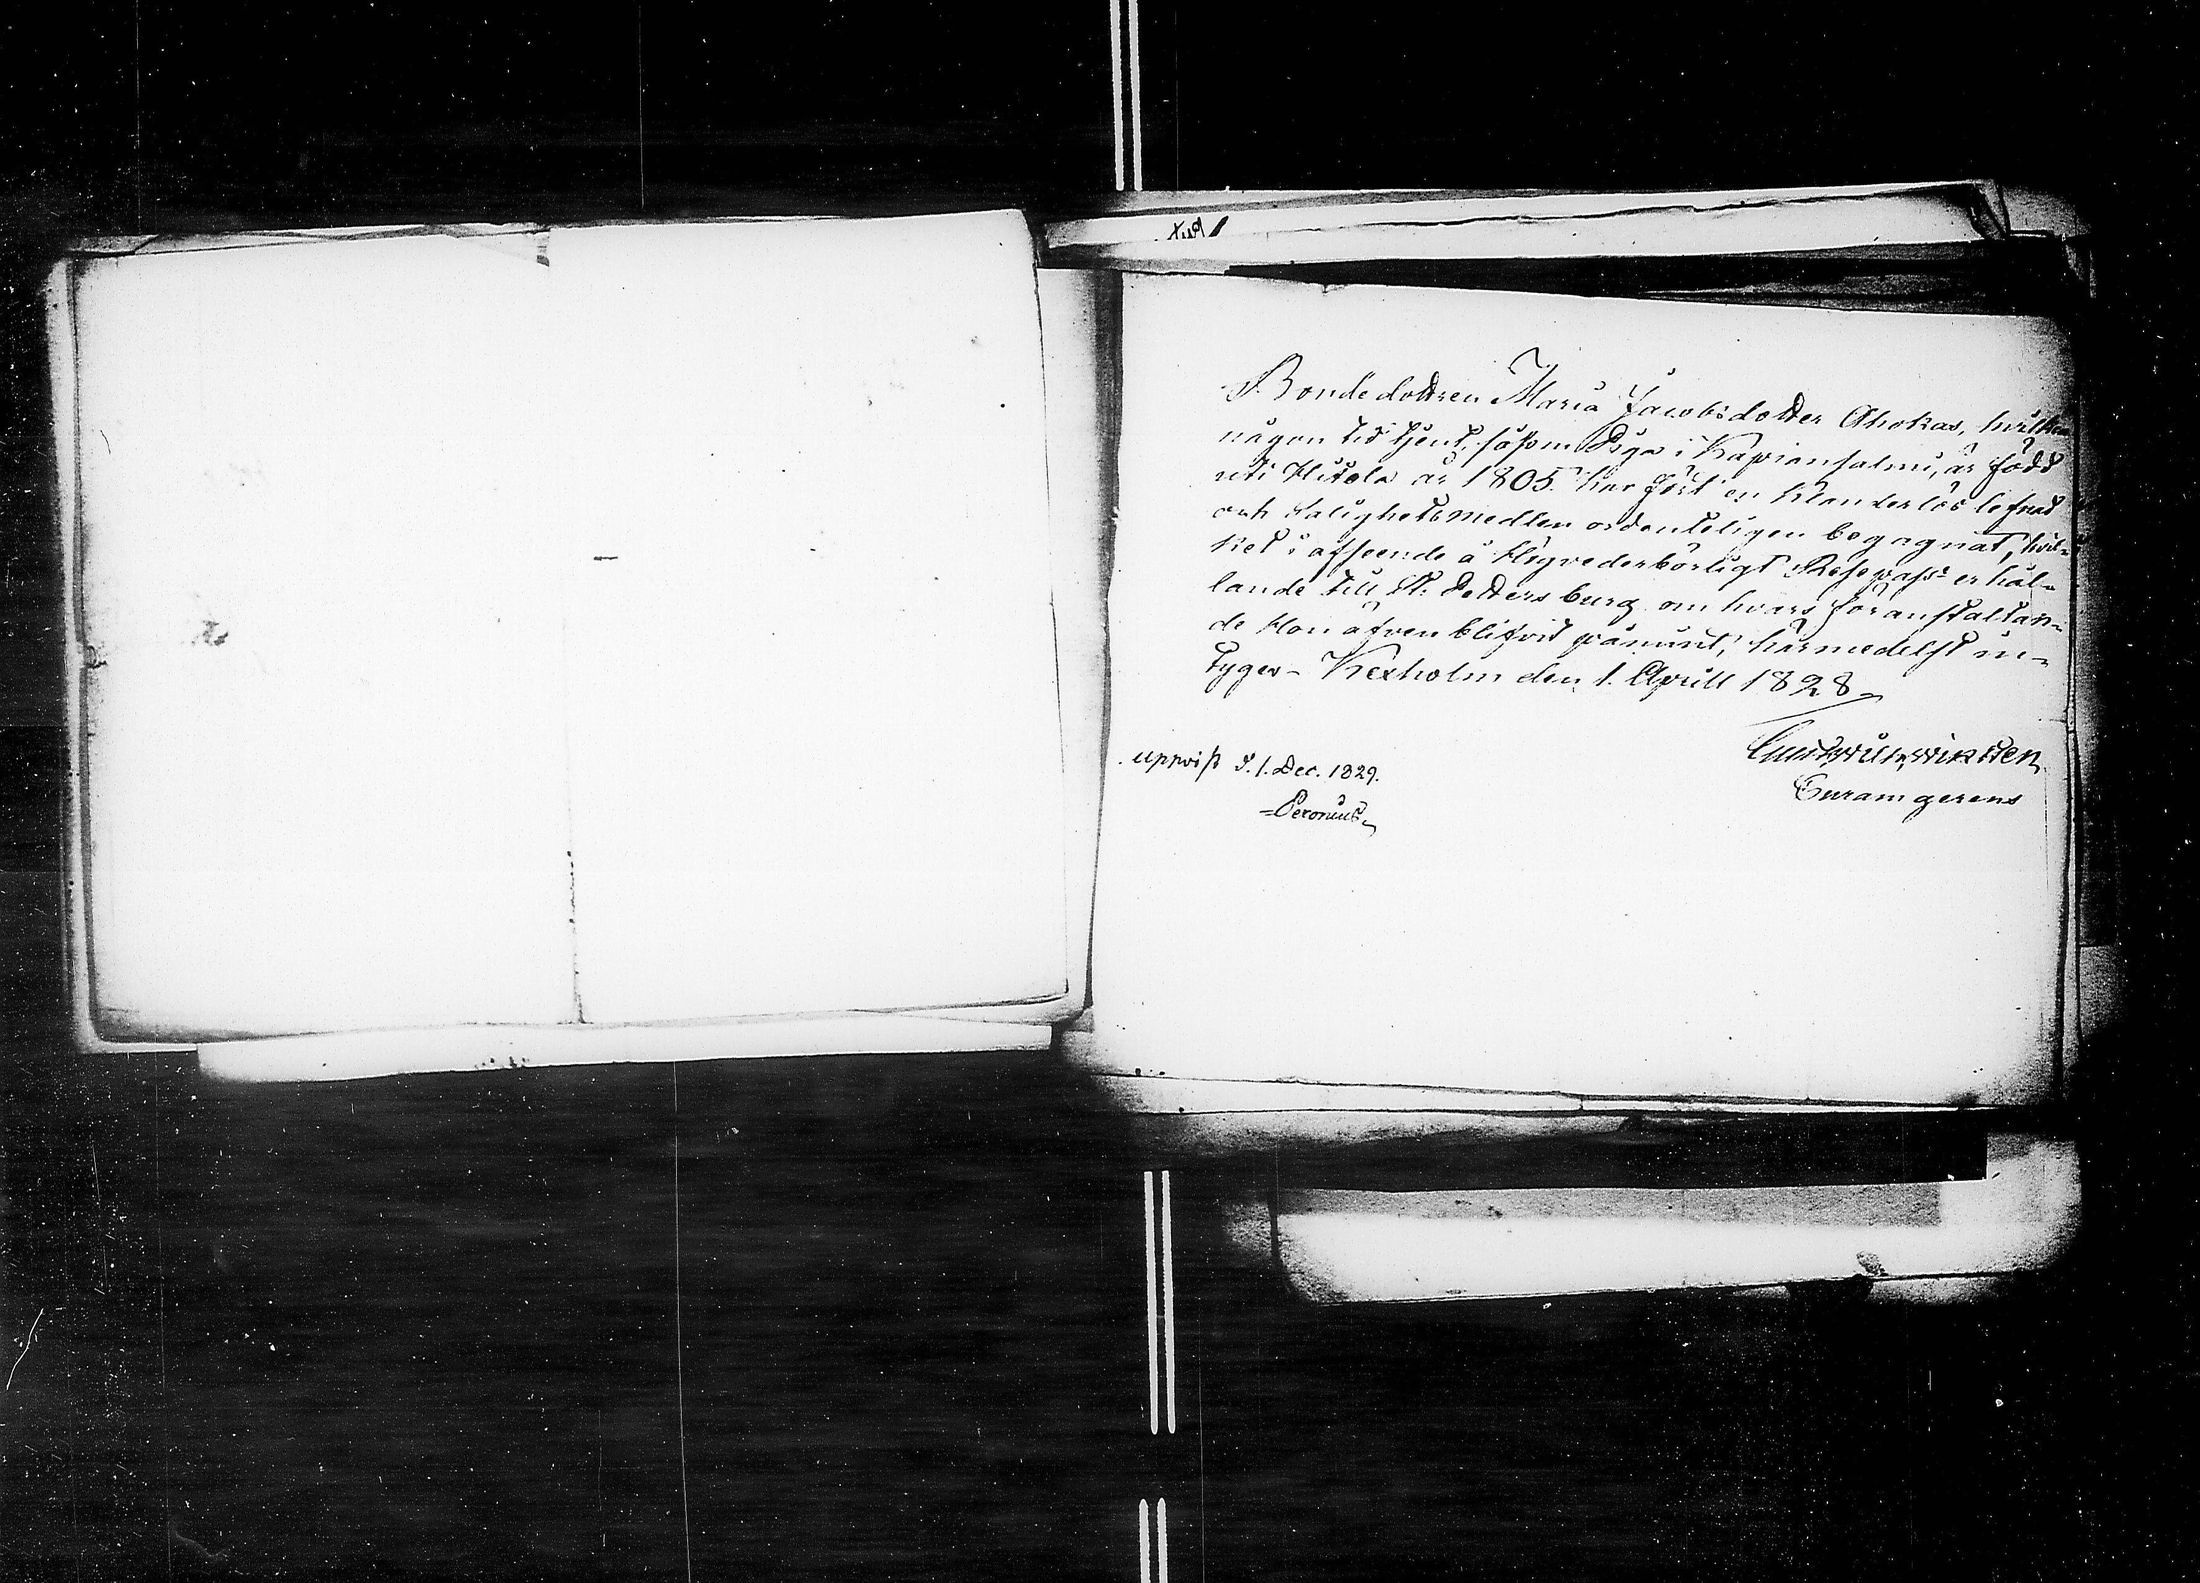 Bondedottren Maria Jacobsdotter Ahokas, hvilken
någon tid tjent såsom Piga i Kapiansalmi, är född
uti Hitola år 1805. har fört en klanderlös lefnad
och Salighetsmedlen ordenteligen begagnat, hvil-
ket i afseende å Högvederbörligt Resepass erhål-
lande till St. Pettersburg om hvars föranstaltan-
de Hon äfven blifvit påmint, härmedelst in-
tygas - Kexholm den 1. Aprill 1828
Curam gerens
uppvist d. 1. Dec. 1829.